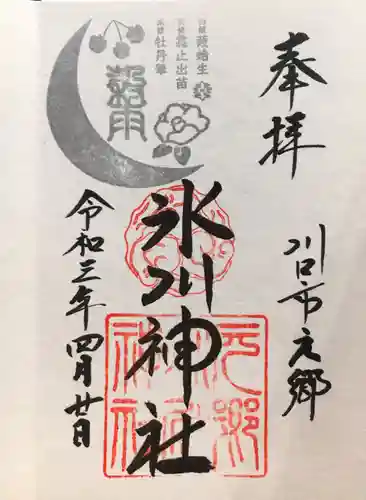 奉拝
川口市元郷
氷川神社
元郷氷川神社
令和三年四月廿日
穀雨
初候 葭始生
次候 霜止出苗
末候 牡丹華